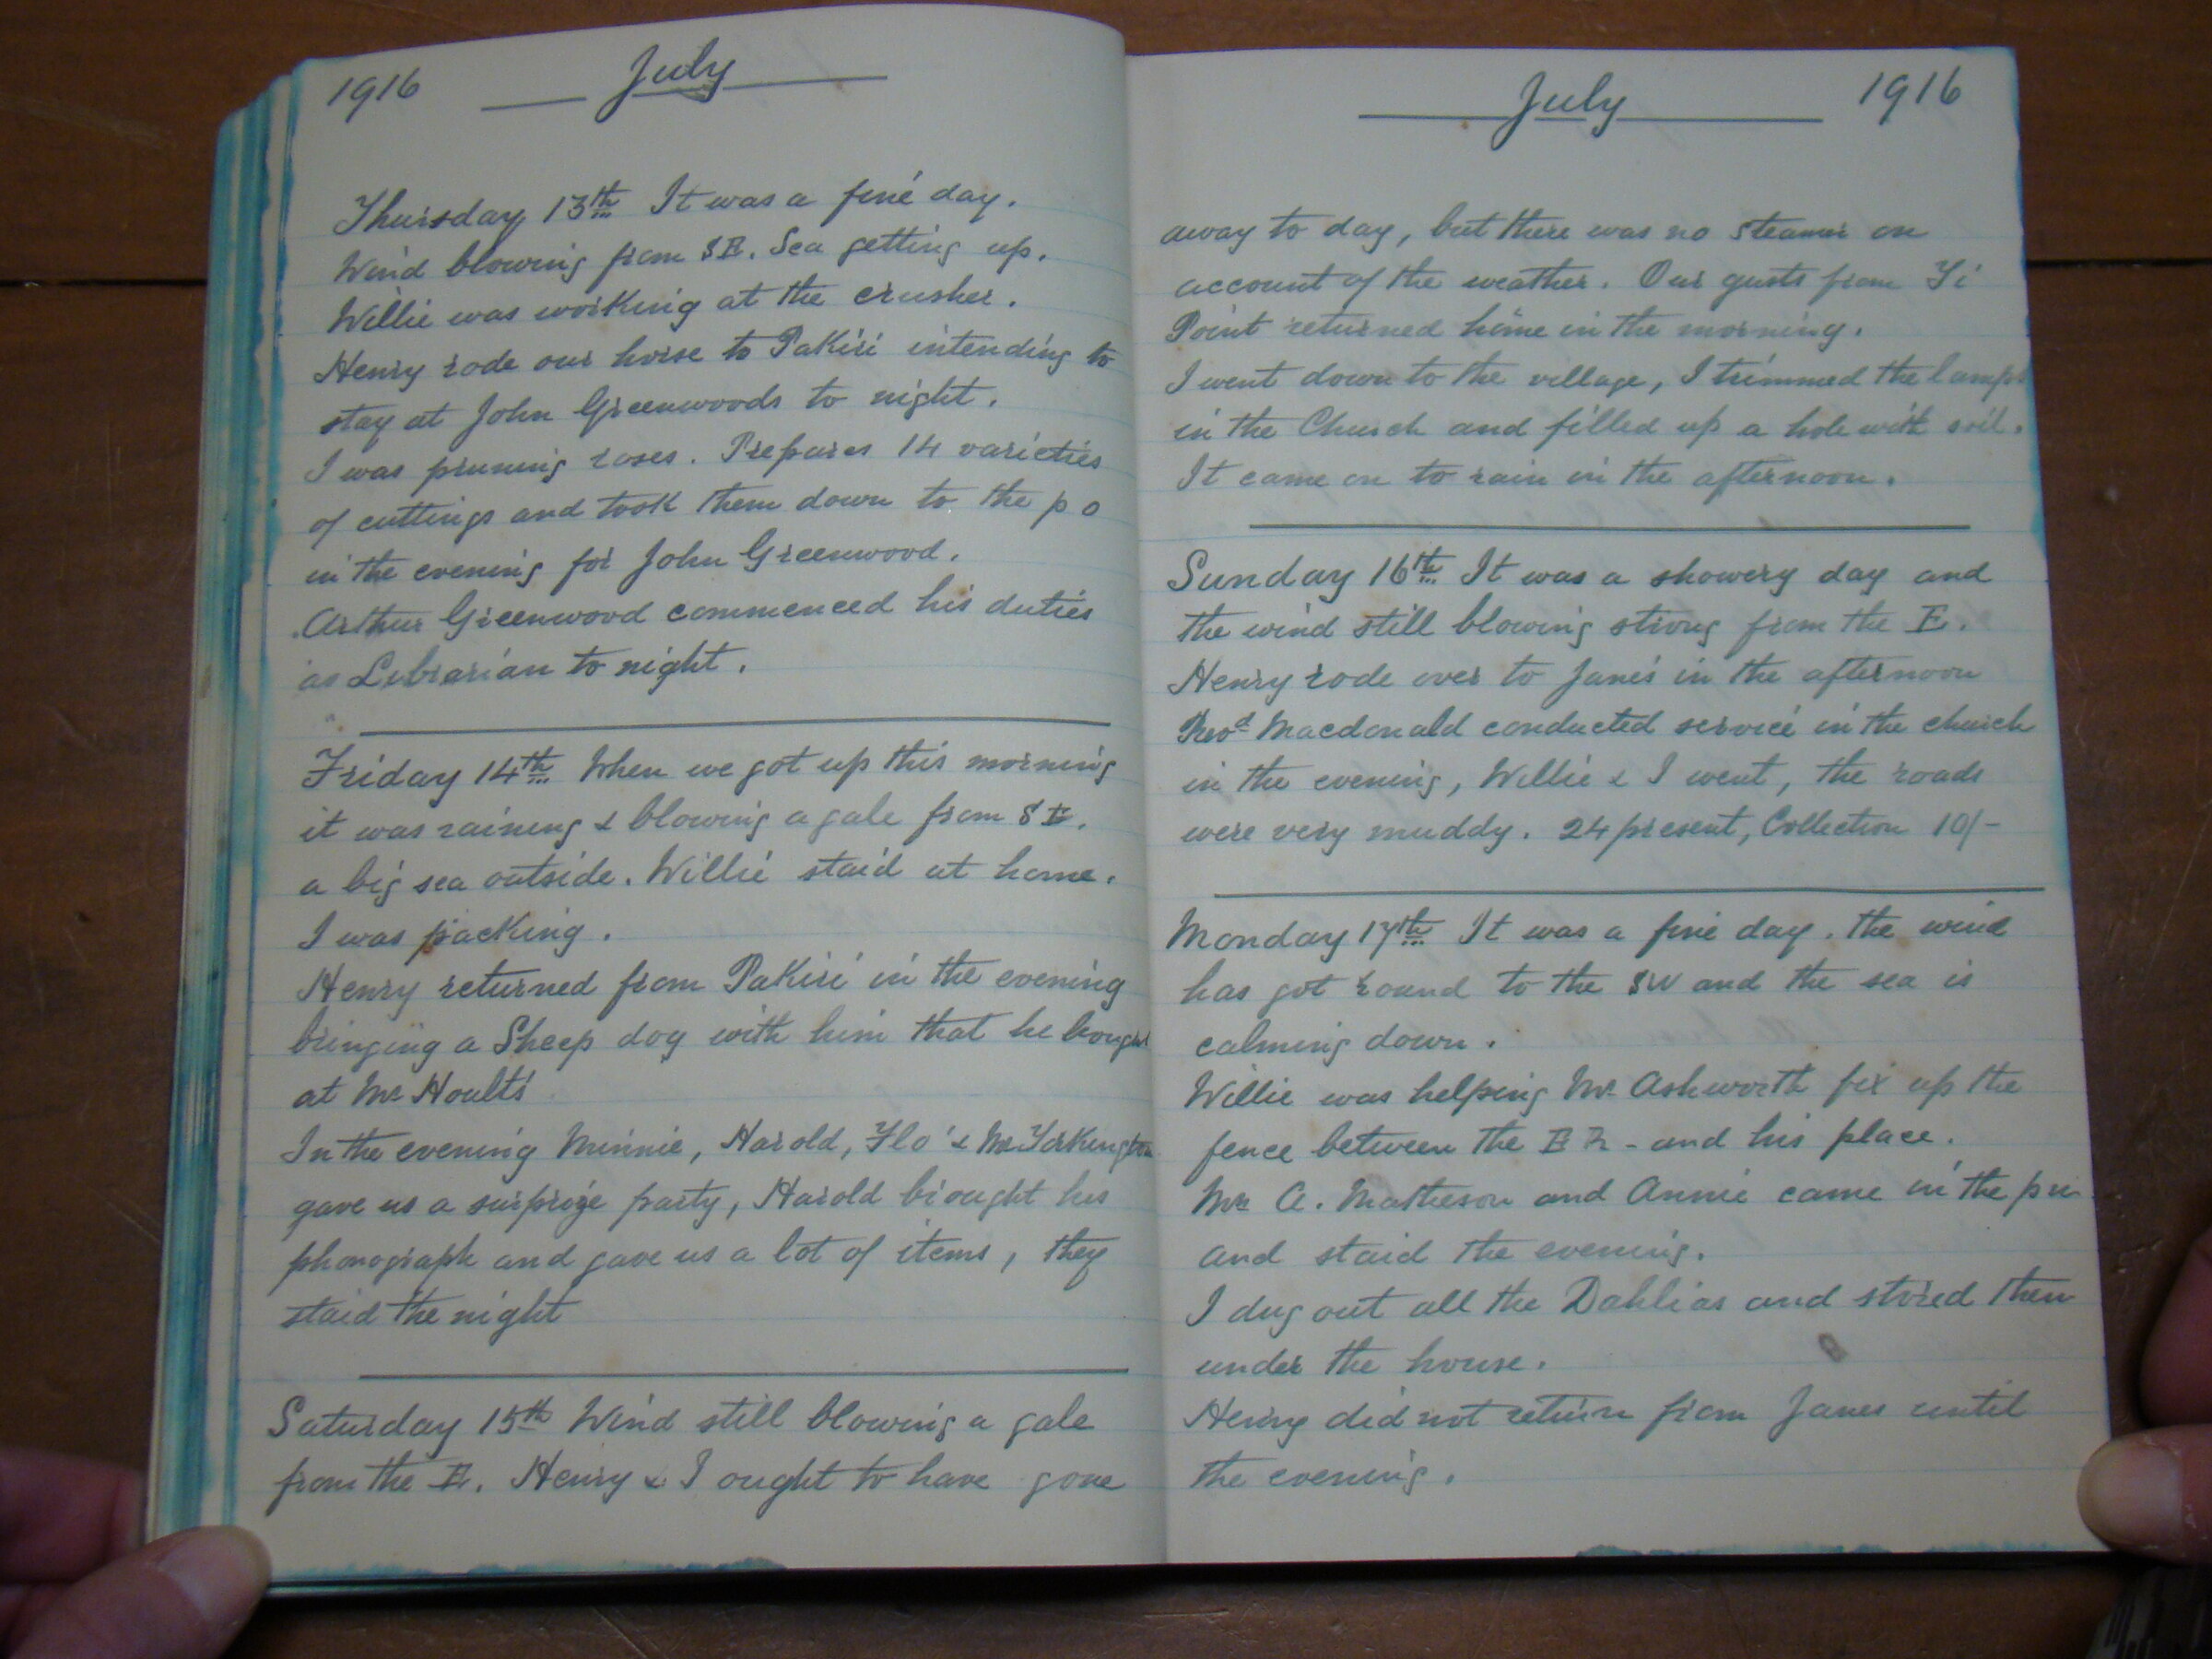 1916 July
Thursday 13th It was a fine day.
Wind blowing from SE. Sea getting up.
Willie was working at the crusher.
Henry rode our horse to Pakiri intending to
stay at John Greenwoods to night.
I was pruning roses. Prepares 14 varieties
of cuttings and took them down to the p o
in the evening for John Greenwood.
Arthur Greenwood commenced his duties
as Librarian to night.
Friday 14th When we got up this morning
it was raining & blowing a gale from SE.
a big sea outside. Willie staid at home.
I was packing.
Henry returned from Pakiri in the evening
bringing a Sheep dog with him that he bought
at Mr Hoult's
In the evening Minnie, Harold, Flo & Mr Torkington
gave us a surprize party, Harold brought his
phonograph and gave us a lot of items, they
staid the night
Saturday 15th Wind still blowing a gale
from the E. Henry & I ought to have gone
July 1916
away to day, but there was no steamer on
account of the weather. Our gusts from Ti
Point returned home in the morning.
I went down to the village, I trimmed the lamps
in the Church and filled up a hole with soil.
It came on to rain in the afternoon.
Sunday 16th It was a showery day and
the wind still blowing strong from the E.
Henry rode over to Janes in the afternoon
Revd Macdonald conducted service in the church
in the evening, Willie & I went, the roads
were very muddy. 24 present, Collection 10/-
Monday 17th It was a fine day. the wind
has got round to the SW and the sea is
calming down.
Willie was helping Mr Ashworth fix up the
fence between the E R - and his place.
Mr A. Matheson and Annie came in the pm
and staid the evening.
I dug out all the Dahlias and stored them
under the house.
Henry did not return from Janes until
the evening.